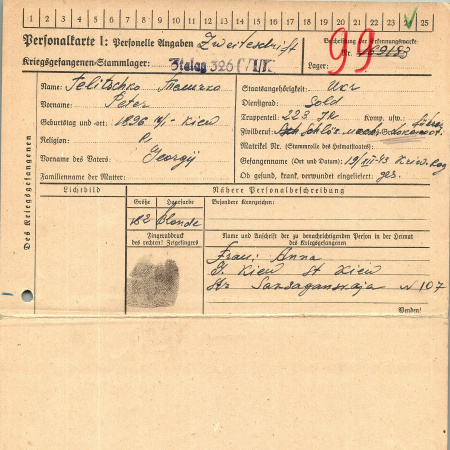 1 2 3 4 5 6 7 8 9 10 11 12 13 14 15 16 17 18 19 20 21 22 23 24 25
Personalkarte I: Personelle Angaben Zweitschrift
Beschriftung der Erkennungsmarke
Nr. 169183
Kriegsgefangenen-Stammlager: Stalag 326 (VI K)
Lager:
99
Des Kriegsgefangenen
Name: Felitschko
Vorname: Peter
Geburtstag und -ort: 1896 Kiew
Religion:
Vorname des Vaters: Georgij
Familienname der Mutter:
Staatsangehörigkeit: Ukr
Dienstgrad: Sold
Truppenteil: 223. JR Komp. usw.:
Zivilberuf:
Matrikel Nr. (Stammrolle des Heimatstaates):
Gefangennahme (Ort und Datum): 19/III-43
Ob gesund, krank, verwundet eingeliefert: ges.
Lichtbild
Nähere Personalbeschreibung
Größe Haarfarbe Besondere Kennzeichen:
182 blonde
Fingerabdruck
des rechten! Zeigefingers
Name und Anschrift der zu benachrichtigenden Person in der Heimat
des Kriegsgefangenen
Frau: Anna
Kiew St Kiew
Str N 107
Wenden!